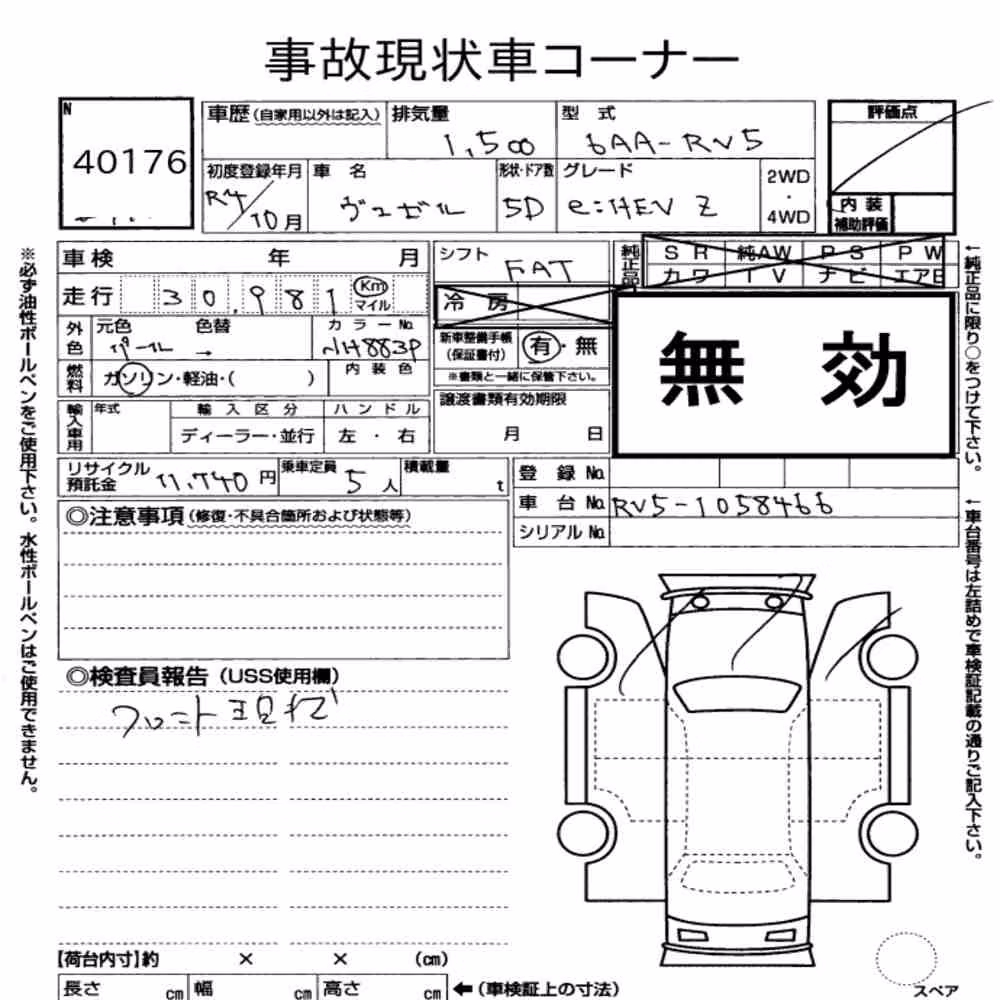 事故現状車コーナー
N
40176
車歴(自家用以外は記入)
排気量
1,500
型 式
6AA-RV5
評価点
初度登録年月
R4/10月
車 名
ヴェゼル
形状・ドア数
5D
グレード
e:HEV Z
2WD
・
4WD
内 装
補助評価
車検 年 月
シフト
FAT
純正品
SR 純AW PS PW
カワ TV ナビ エアB
走行 30,981 Km
マイル
冷 房
外色
元色 色替
パール →
カラーNo.
NH883P
新車整備手帳
(保証書付)
有・無
※書類と一緒に保管下さい。
無 効
燃料
ガソリン・軽油・( )
内 装 色
譲渡書類有効期限
月 日
輸入車用
年式
輸 入 区 分
ディーラー・並行
ハ ン ド ル
左 ・ 右
リサイクル
預託金
11,740円
乗車定員
5人
積載量
t
登 録 No.
車 台 No.
RV5-1058466
シリアル No.
◎注意事項(修復・不具合箇所および状態等)
◎検査員報告(USS使用欄)
フロント現状
※必ず油性ボールペンをご使用下さい。水性ボールペンはご使用できません。
←純正品に限り○をつけて下さい。
←車台番号は左詰めで車検証記載の通りご記入下さい。
【荷台内寸】約 × × (cm)
長さ cm 幅 cm 高さ cm
←(車検証上の寸法)
スペア